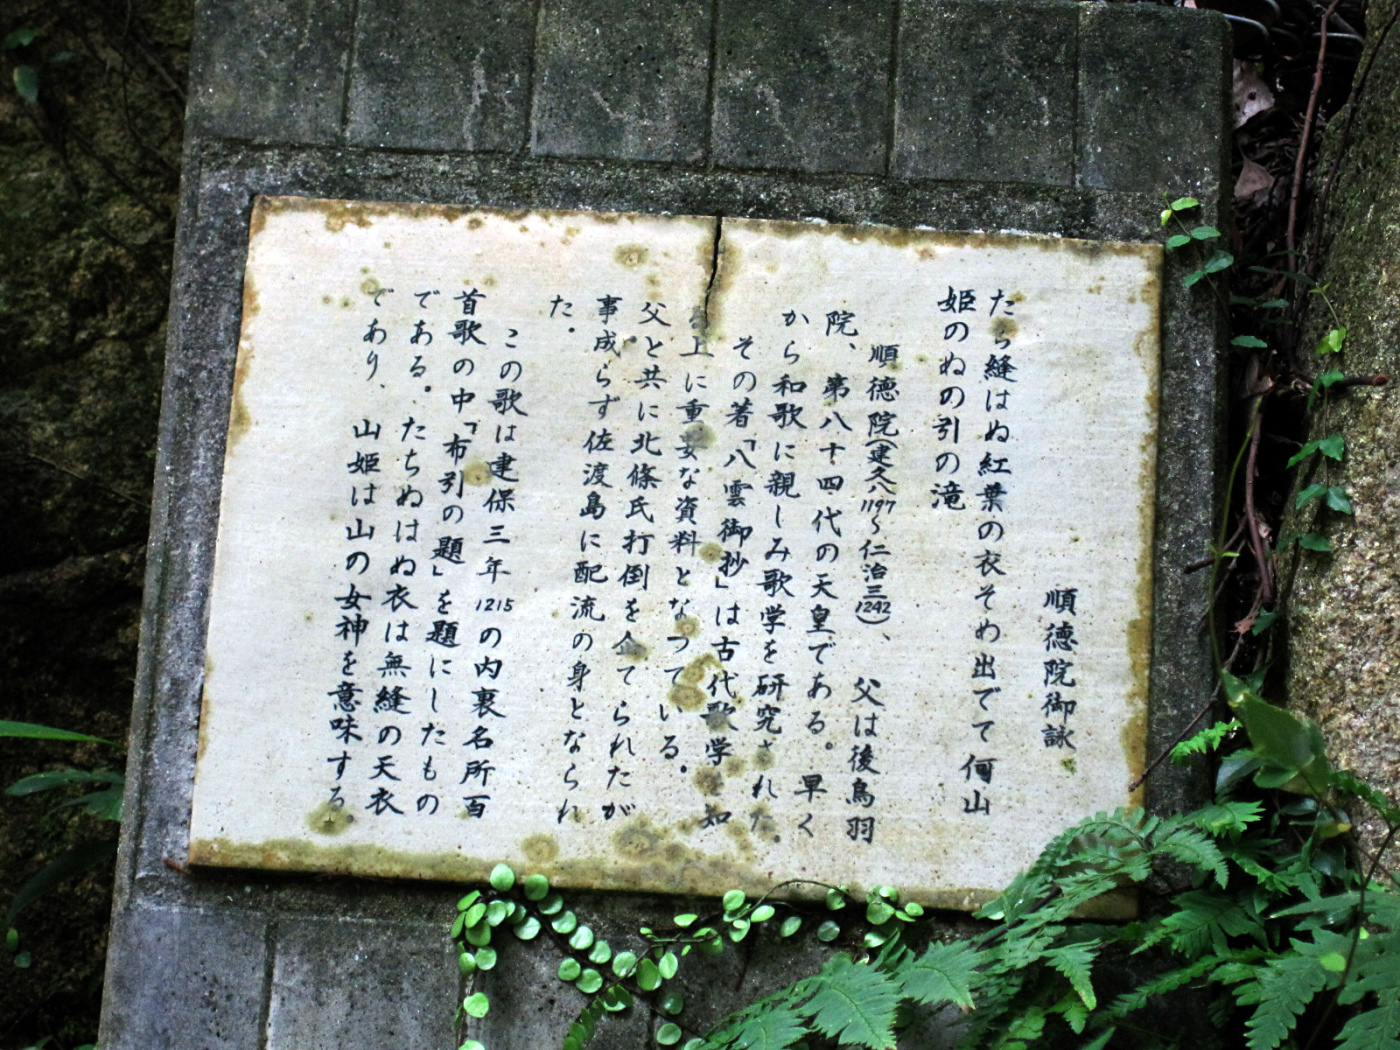 順徳院御詠
たち縫はぬ紅葉の衣そめ出でて何山
姫のぬの引の滝
順徳院(建久八1197〜仁治三1242)、父は後鳥羽
院、第八十四代の天皇である。早く
から和歌に親しみ歌学を研究された。
その著「八雲御抄」は古代歌学を知
上に重要な資料となっている。
父と共に北條氏打倒を企てられたが
事成らず佐渡島に配流の身となられ
た。
この歌は建保三年1215の内裏名所百
首歌の中「布引の題」を題にしたもの
である。たちぬはぬ衣は無縫の天衣
であり、山姫は山の女神を意味する。